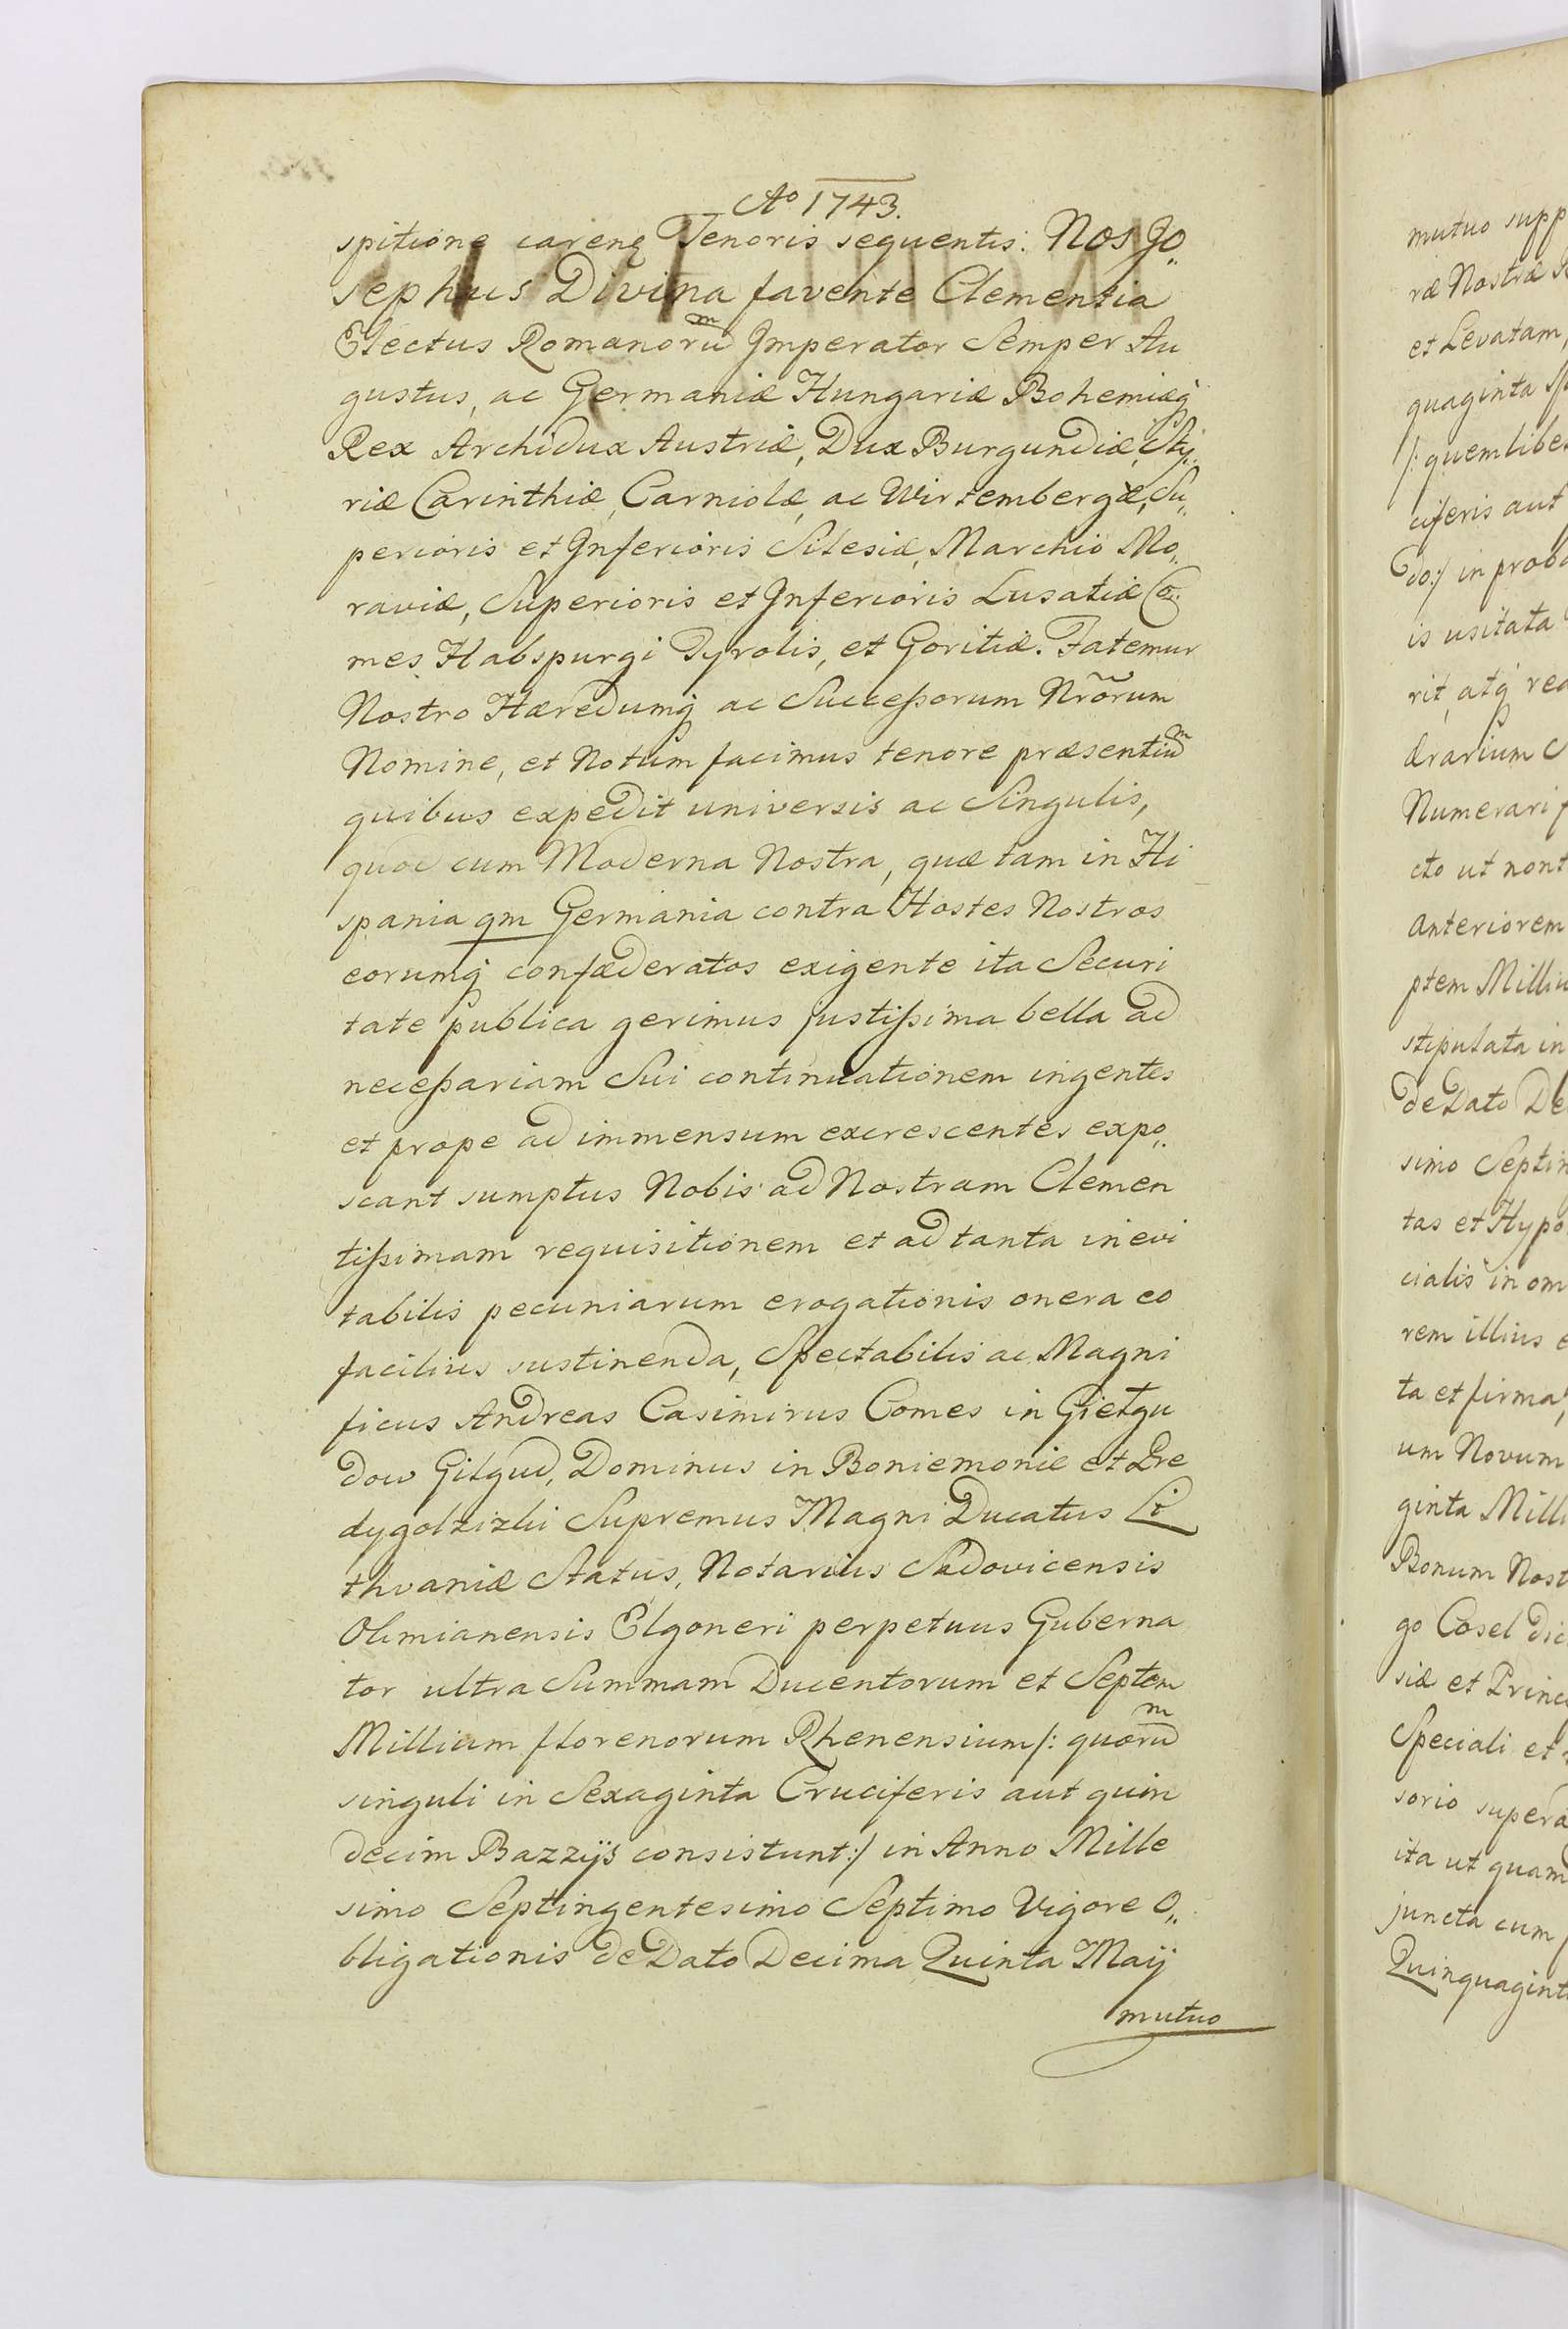 Ao 1743.
spitione carens Tenoris sequentis: Nos Jo„
sephus Divina favente Clementia
Electus Romanorum Imperator Semper Au
gustus, ac Germaniæ Hungariæ Bohemiæq́
Rex Archidux Austriæ, Dux Burgundiæ, Sty„
riæ Carinthiæ, Carniolæ, ac Wirtembergæ, Su„
perioris et Inferioris Silesiæ, Marchio Mo„
raviæ, Superioris et Inferioris Lusatiæ Co„
mes Habspurgi Tyrolis, et Goritiæ. Fatemur
Nostro Hæredumq́ ac Successorum Nrõrum
Nomine, et Notum facimus tenore præsentium
quibus expedit universis ac Singulis,
quod cum Moderna Nostra, quæ tam in Hi
spania qm Germania contra Hostes Nostros
eorumq́ confæderatos exigente ita Securi
tate publica gerimus justissima bella ad
necessariam Sui continuationem ingentes
et prope ad immensum excrescentes expo„
scant sumptus Nobis ad Nostram Clemen
tissimam requisitionem et ad tanta inevi
tabilis pecuniarum erogationis onera eo
facilius sustinenda, Spectabilis ac Magni
ficus Andreas Casimirus Comes in Gietgu
dow Gilgud, Dominus in Boniemonie et Pre
dygolzizlii Supremus Magni Ducatus Li
thvaniæ Status, Notarius Sadovicensis
Olimianensis Elgoneri perpetuus Guberna
tor ultra Summam Ducentorum et Septem
Millium florenorum Rhenensium /: quorum
singuli in Sexaginta Cruciferis aut quin
decim Bazzijs consistunt :/ in Anno Mille
simo Septingentesimo Septimo Vigore O„
bligationis de Dato Decima Quinta Maij
mutuo
mutuo supp
ræ Nostræ
et Levatam,
quaginta
/: quemlibe
ciferis aut
do :/ in prob
is usitata
rit, atq́ re
Ærarium
Numerari
cto ut non
anteriorem
ptem Milli
stipulata in
de Dato De
simo Septi
tas et Hypo
cialis in om
rem illius
ta et firma,
um Novum
ginta Mill
Bonum Nost
go Cosel dic
siæ et Princ
Speciali et
sorio supera
ita ut quam
juncta cum
Quinquagint